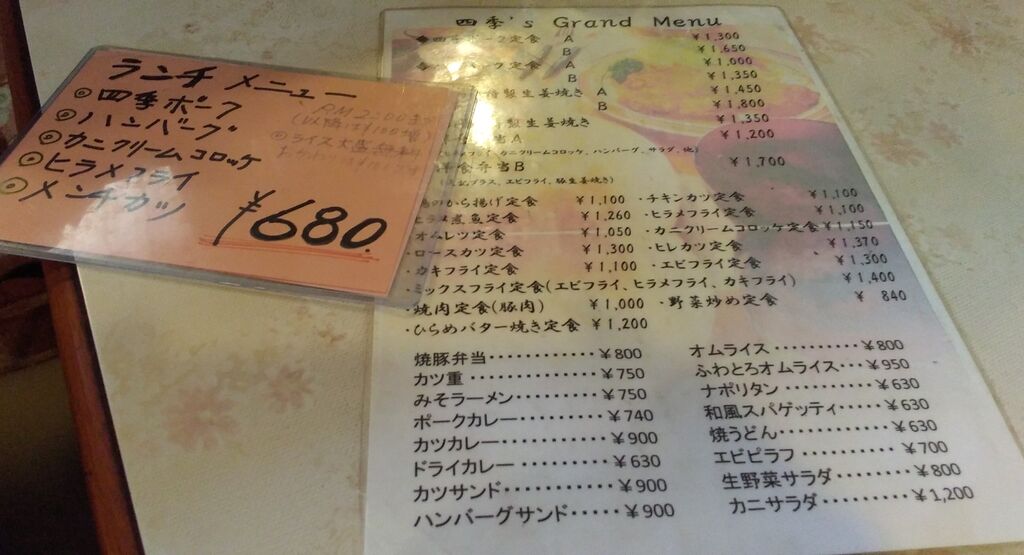 ランチメニュー
◎四季ポーク
◎ハンバーグ
◎カニクリームコロッケ
◎ヒラメフライ
◎メンチカツ
¥680.
◎ライス大盛無料
四季's Grand Menu
四季ポーク定食 A ¥1,300
B ¥1,650
定食 A ¥1,000
B ¥1,350
製生姜焼き A ¥1,450
B ¥1,800
製生姜焼き ¥1,350
当A ¥1,200
フライ、カニクリームコロッケ、ハンバーグ、サラダ、他)
洋食弁当B ¥1,700
プラス、エビフライ、豚生姜焼き)
のから揚げ定食 ¥1,100 ・チキンカツ定食 ¥1,100
ヒラメ煮魚定食 ¥1,260 ・ヒラメフライ定食 ¥1,100
・オムレツ定食 ¥1,050 ・カニクリームコロッケ定食 ¥1,150
・ロースカツ定食 ¥1,300 ・ヒレカツ定食 ¥1,370
・カキフライ定食 ¥1,100 ・エビフライ定食 ¥1,300
・ミックスフライ定食(エビフライ、ヒラメフライ、カキフライ) ¥1,400
・焼肉定食(豚肉) ¥1,000 ・野菜炒め定食 ¥ 840
・ひらめバター焼き定食 ¥1,200
焼豚弁当············¥800
カツ重··············¥750
みそラーメン·········¥750
ポークカレー·········¥740
カツカレー···········¥900
ドライカレー·········¥630
カツサンド···········¥900
ハンバーグサンド·····¥900
オムライス··········¥800
ふわとろオムライス···¥950
ナポリタン··········¥630
和風スパゲッティ·····¥630
焼うどん············¥630
エビピラフ··········¥700
生野菜サラダ········¥800
カニサラダ··········¥1,200